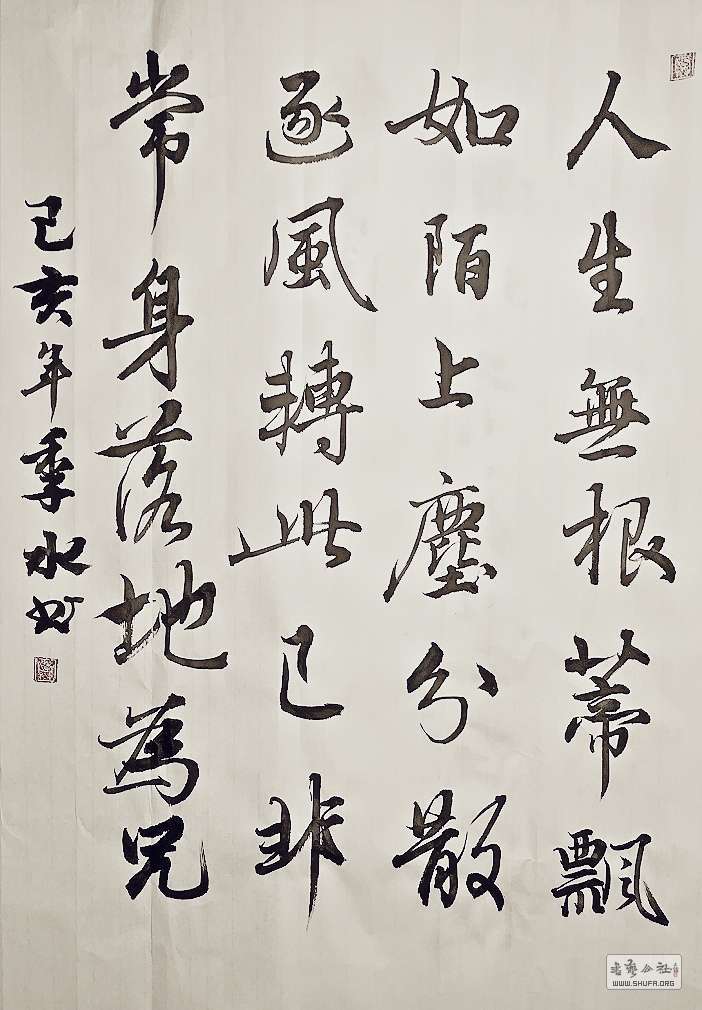 人生無根蒂飄
如陌上塵分散
逐風轉此已非
常身落地為兄
己亥年季水书
书艺公社
WWW.SHUFA.ORG